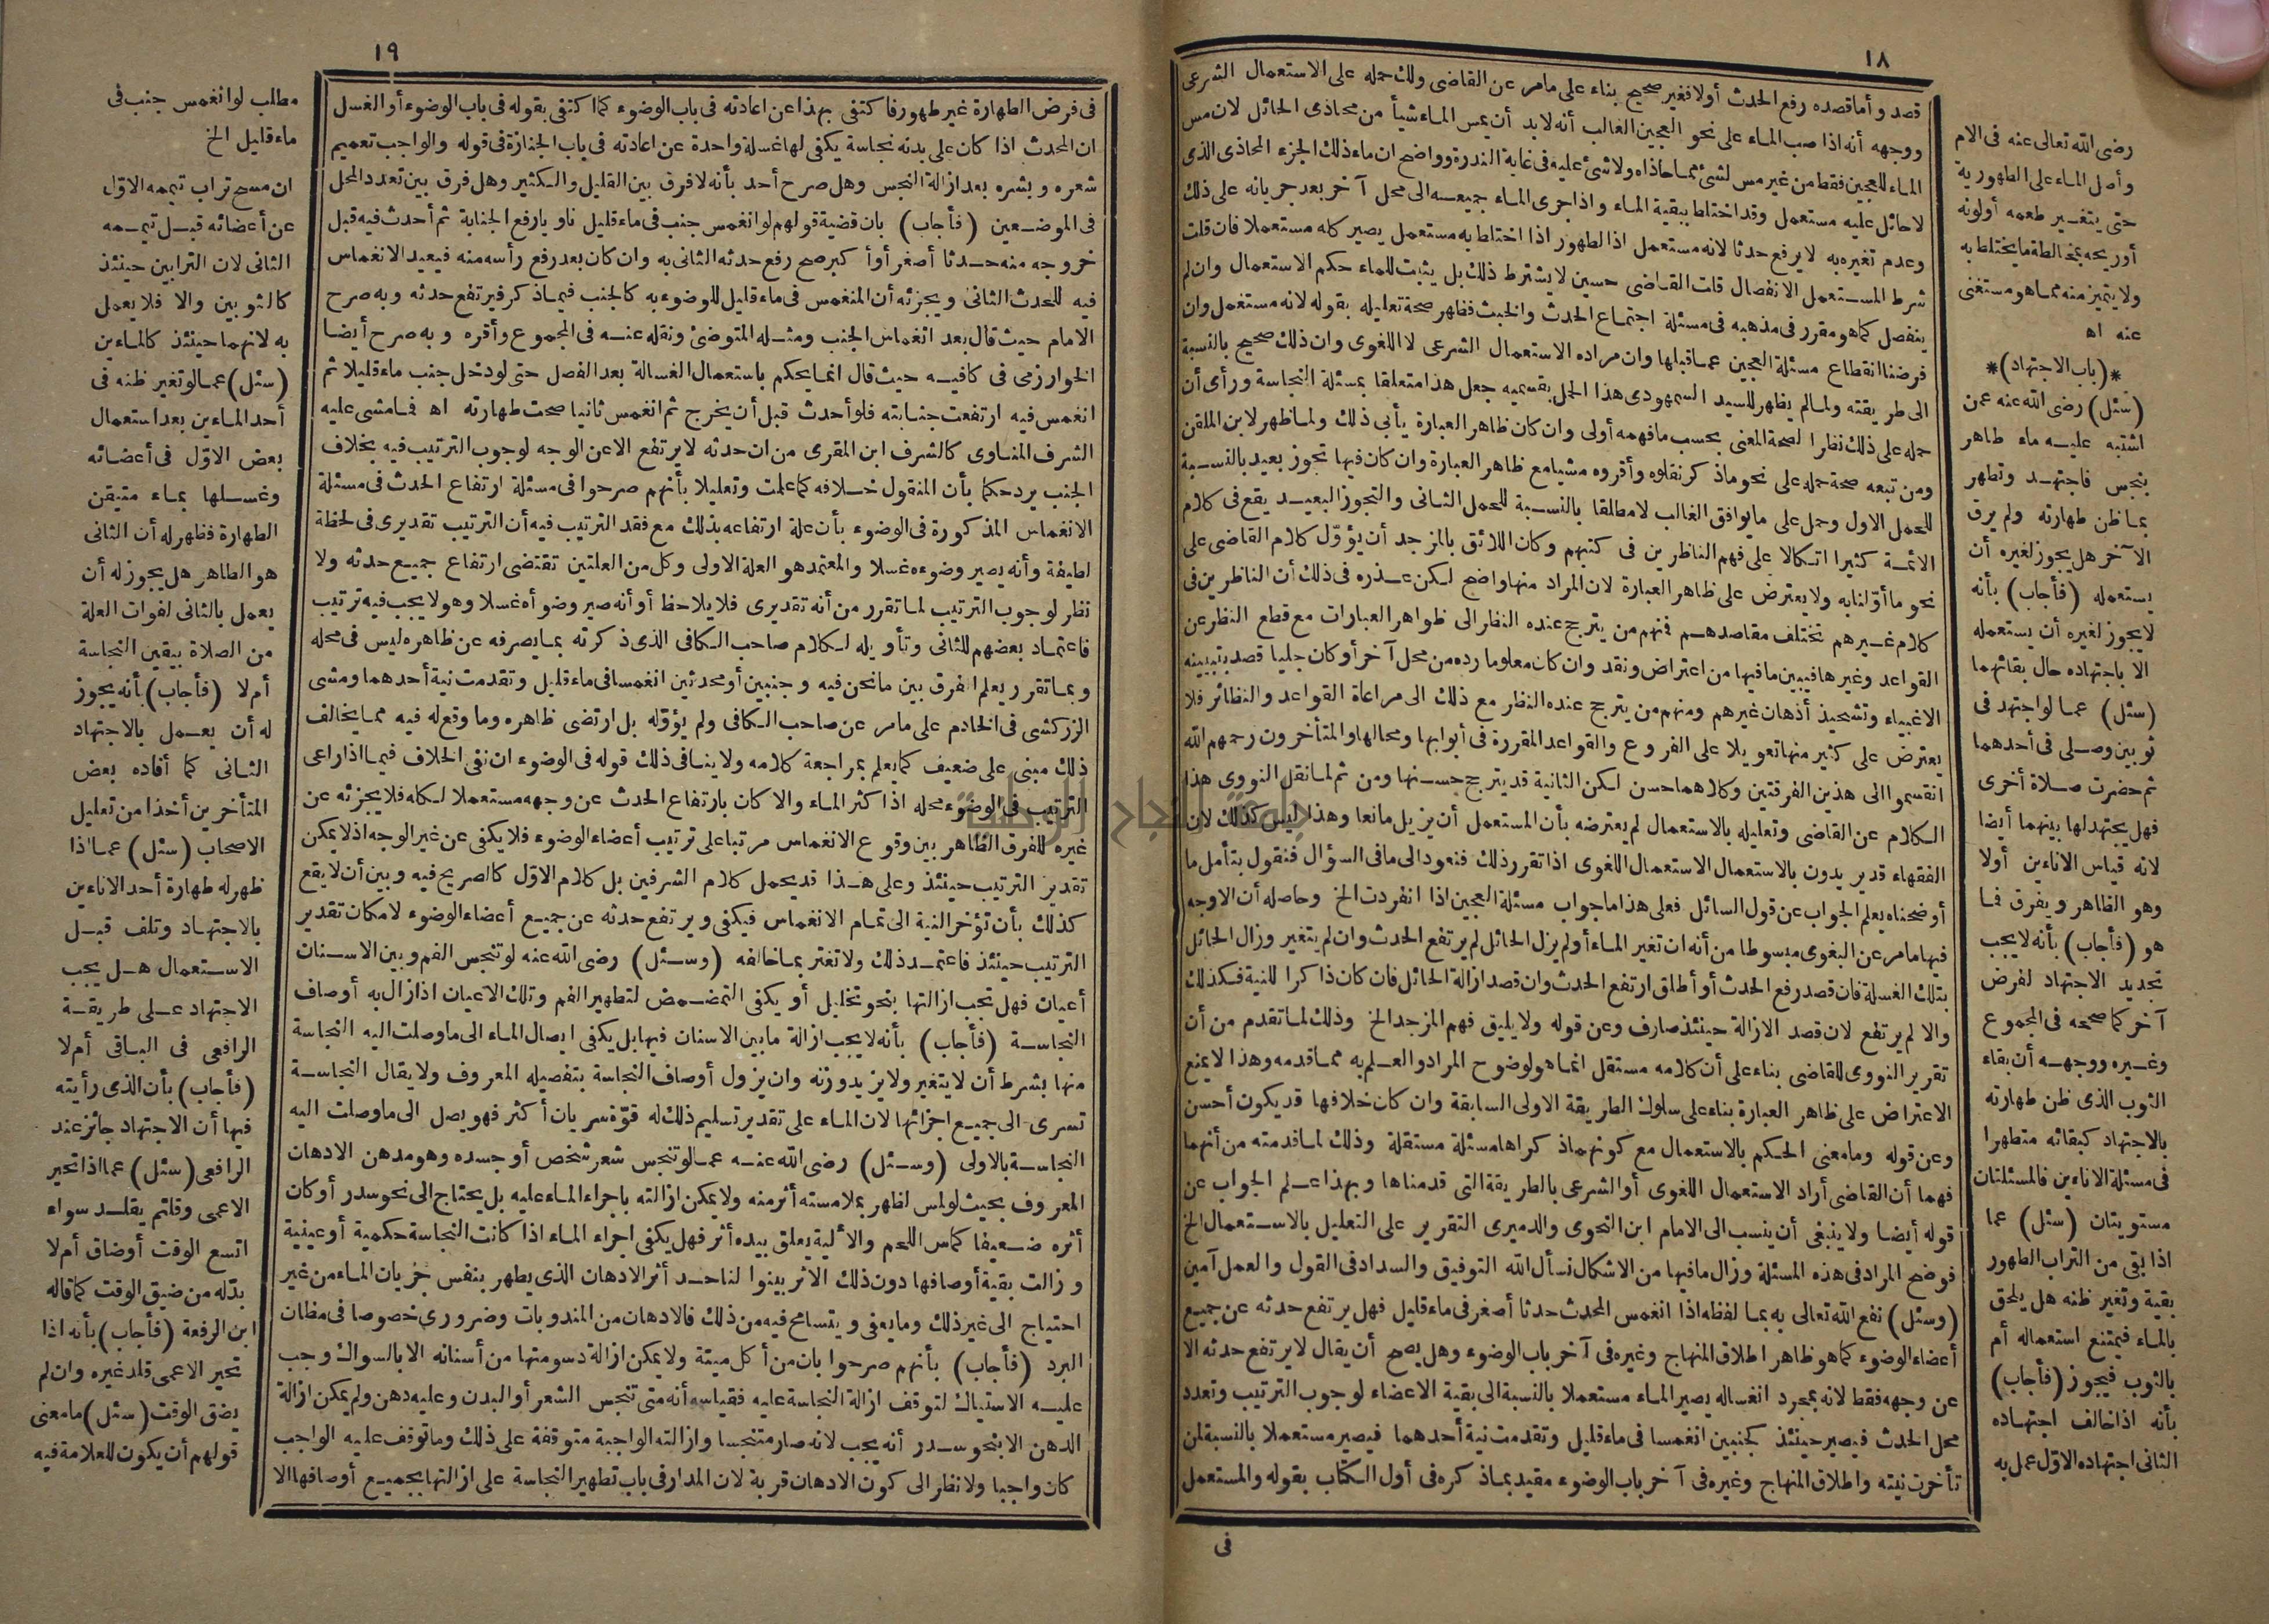 ١٨
قصد وأما قصده رفع الحدث أولا فغير صحيح بناء على ما مر عن القاضي ولك حمله على الاستعمال الشرعى
ووجهه أنه اذا صب الماء على نحو العجين الغالب أنه لا بد أن يمس الماء شيأ من محاذى الحائل لان مس
الماء للعجين فقط من غير مس لشئ مما حاذاه ولا شئ عليه فى غاية الندرة وواضح ان ماء ذلك الجزء المحاذى الذى
لا حائل عليه مستعمل وقد اختلط ببقية الماء واذا جرى الماء جميعه الى محل آخر بعد جريانه على ذلك
وعدم تغيره به لا يرفع حدثا لانه مستعمل اذا لطهور اذا اختلط به مستعمل يصير كله مستعملا فان قلت
شرط المستعمل الانفصال قلت القاضى حسين لا يشترط ذلك بل يثبت للماء حكم الاستعمال وان لم
ينفصل كما هو مقرر فى مذهبه فى مسئلة اجتماع الحدث والخبث فظهر صحة تعليله بقوله لانه مستعمل وان
فرضنا انقطاع مسئلة العجين عما قبلها وان مراده الاستعمال الشرعى لا اللغوى وان ذلك صحيح بالنسبة
الى طريقته ولما لم يظهر للسيد السمهودى هذا الحمل بقسميه جعل هذا متعلقا بمسئلة النجاسة ورأى أن
حمله على ذلك نظرا لصحة المعنى بحسب ما فهمه أولى وان كان ظاهر العبارة يأبى ذلك ولما ظهر لابن الملقن
ومن تبعه صحة حمله على نحو ما ذكر نقلوه وأقروه مشيا مع ظاهر العبارة وان كان فيها تجوز بعيد بالنسبة
للحمل الاول وحمل على ما يوافق الغالب لا مطلقا بالنسبة للحمل الثانى والتجوز البعيد يقع فى كلام
الائمة كثيرا اتكالا على فهم الناظرين فى كتبهم وكان اللائق بالمزجد أن يؤول كلام القاضى على
نحو ما أولنا به ولا يعترض على ظاهر العبارة لان المراد منها واضح لكن عذره فى ذلك أن الناظرين فى
كلام غيرهم تختلف مقاصدهم فمنهم من يترجح عنده النظر الى ظواهر العبارات مع قطع النظر عن
القواعد وغيرها فيبين ما فيها من اعتراض ونقد وان كان معلوما رده من محل آخر أو كان جليا قصد بتبيينه
الاغبياء وتشحيذ أذهان غيرهم ومنهم من يترجح عنده النظر مع ذلك الى مراعاة القواعد والنظائر فلا
يعترض على كثير منها تعويلا على الفروع والقواعد المقررة فى أبوابها ومحالها والمتأخرون رحمهم الله
انقسموا الى هذين الفرقتين وكلاهما حسن لكن الثانية قد يترجح حسنها ومن ثم لما نقل النووى هذا
الكلام عن القاضى وتعليله بالاستعمال لم يعترضه بأن المستعمل أن يزيل مانعا وهذا ليس كذلك لان
الفقهاء قد يريدون بالاستعمال الاستعمال اللغوى اذا تقرر ذلك فنعود الى ما فى السؤال فنقول بتأمل ما
أوضحناه يعلم الجواب عن قول السائل فعلى هذا ما جواب مسئلة العجين اذا انفردت الخ وحاصله أن الاوجه
فيها ما مر عن البغوى مبسوطا من أنه ان تغير الماء أو لم يزل الحائل لم يرتفع الحدث وان لم يتغير وزال الحائل
بتلك الغسلة فان قصد رفع الحدث أو أطلق ارتفع الحدث وان قصد ازالة الحائل فان كان ذاكرا للنية فكذلك
والا لم يرتفع لان قصد الازالة حينئذ صارف وعن قوله ولا يليق فهم المزجد الخ وذلك لما تقدم من أن
تقرير النووى للقاضى بناء على أن كلامه مستقل انما هو لوضوح المراد والعلم به مما قدمه وهذا لا يمنع
الاعتراض على ظاهر العبارة بناء على سلوك الطريقة الاولى السابقة وان كان خلافها قد يكون أحسن
وعن قوله وما معنى الحكم بالاستعمال مع كونهما ذكراها مسئلة مستقلة وذلك لما قدمته من أنهما
فهما أن القاضى أراد الاستعمال اللغوى أو الشرعى بالطريقة التى قدمناها وبهذا علم الجواب عن
قوله أيضا ولا ينبغى أن ينسب الى الامام ابن النحوى والدميرى التقرير على التعليل بالاستعمال الخ
فوضح المراد فى هذه المسئلة وزال ما فيها من الاشكال نسأل الله التوفيق والسداد فى القول والعمل آمين
(وسئل) نفع الله تعالى به بما لفظه اذا انغمس المحدث حدثا أصغر فى ماء قليل فهل يرتفع حدثه عن جميع
أعضاء الوضوء كما هو ظاهر اطلاق المنهاج وغيره فى آخر باب الوضوء وهل يصح أن يقال لا يرتفع حدثه الا
عن وجهه فقط لانه بمجرد انغساله يصير الماء مستعملا بالنسبة الى بقية الاعضاء لوجوب الترتيب وتعدد
محل الحدث فيصير حينئذ كجنبين انغمسا فى ماء قليل وتقدمت نية أحدهما فيصير مستعملا بالنسبة لمن
تأخرت نيته واطلاق المنهاج وغيره فى آخر باب الوضوء مقيد بما ذكره فى أول الكتاب بقوله والمستعمل
فى
رضى الله تعالى عنه فى الام
وأصل الماء على الطهورية
حتى يتغير طعمه أو لونه
أو ريحه بمخالطة ما يختلط به
ولا يتميز منه مما هو مستغنى
عنه اه
*(باب الاجتهاد)*
(سئل) رضى الله عنه عمن
اشتبه عليه ماء طاهر
بنجس فاجتهد وتطهر
بما ظن طهارته ولم يرق
الآخر هل يجوز لغيره أن
يستعمله (فأجاب) بأنه
لا يجوز لغيره أن يستعمله
الا باجتهاده حال بقائهما
(سئل) عما لو اجتهد فى
ثوبين وصلى فى أحدهما
ثم حضرت صلاة أخرى
فهل يجتهد لها بينهما أيضا
لانه قياس الاناءين أولا
وهو الظاهر ويفرق فما
هو (فأجاب) بأنه لا يجب
تجديد الاجتهاد لفرض
آخر كما صححه فى المجموع
وغيره ووجهه أن بقاء
الثوب الذى ظن طهارته
بالاجتهاد كبقائه متطهرا
فى مسئلة الاناءين فالمسئلتان
مستويتان (سئل) عما
اذا بقى من التراب الطهور
بقية وتغير ظنه هل يلحق
بالماء فيمتنع استعماله أم
بالثوب فيجوز (فأجاب)
بأنه اذا خالف اجتهاده
الثانى اجتهاده الاول عمل به
١٩
فى فرض الطهارة غير طهور فاكتفى بهذا عن اعادته فى باب الوضوء كما اكتفى بقوله فى باب الوضوء أو الغسل
ان المحدث اذا كان على بدنه نجاسة يكفى لها غسلة واحدة عن اعادته فى باب الجنازة فى قوله والواجب تعميم
شعره وبشره بعد ازالة النجس وهل صرح أحد بأنه لا فرق بين القليل والكثير وهل فرق بين تعدد المحل
فى الموضعين (فأجاب) بان قضية قولهم لو انغمس جنب فى ماء قليل ناويا رفع الجنابة ثم أحدث فيه قبل
خروجه منه حدثا أصغر أو أكبر صح رفع حدثه الثانى به وان كان بعد رفع رأسه منه فيعيد الانغماس
فيه للحدث الثانى ويجزئه أن المنغمس فى ماء قليل للوضوء به كالجنب فيما ذكر فيرتفع حدثه وبه صرح
الامام حيث قال بعد انغماس الجنب ومثله المتوضئ ونقله عنه فى المجموع وأقره وبه صرح أيضا
الخوارزمى فى كافيه حيث قال انما يحكم باستعمال الغسالة بعد الفصل حتى لو دخل جنب ماء قليلا ثم
انغمس فيه ارتفعت جنابته فلو أحدث قبل أن يخرج ثم انغمس ثانيا صحت طهارته اه فما مشى عليه
الشرف المناوى كالشرف ابن المقرى من ان حدثه لا يرتفع الا عن الوجه لوجوب الترتيب فيه بخلاف
الجنب يرد حكما بأن المنقول خلافه كما علمت وتعليلا بأنهم صرحوا فى مسئلة ارتفاع الحدث فى مسئلة
الانغماس المذكورة فى الوضوء بأن علة ارتفاعه بذلك مع فقد الترتيب فيه أن الترتيب تقديرى فى لحظة
لطيفة وأنه يصير وضوءه غسلا والمعتمد هو العلة الاولى وكل من العلتين تقتضى ارتفاع جميع حدثه ولا
نظر لوجوب الترتيب لما تقرر من أنه تقديرى فلا يلاحظ أو أنه صير وضوأه غسلا وهو لا يجب فيه ترتيب
فاعتماد بعضهم للثانى وتأويله لكلام صاحب الكافى الذى ذكرته بما يصرفه عن ظاهره ليس فى محله
وبما تقرر يعلم الفرق بين ما نحن فيه وجنبين أو محدثين انغمسا فى ماء قليل وتقدمت نية أحدهما ومشى
الزركشى فى الخادم على ما مر عن صاحب الكافى ولم يؤوله بل ارتضى ظاهره وما وقع له فيه مما يخالف
ذلك مبنى على ضعيف كما يعلم بمراجعة كلامه ولا ينافى ذلك قوله فى الوضوء ان نفى الخلاف فيما اذا راعى
الترتيب فى الوضوء محله اذا كثر الماء والا كان بارتفاع الحدث عن وجهه مستعملا لكله فلا يجزئه عن
غيره للفرق الظاهر بين وقوع الانغماس مرتبا على ترتيب أعضاء الوضوء فلا يكفى عن غير الوجه اذ لا يمكن
تقدير الترتيب حينئذ وعلى هذا قد يحمل كلام الشرفين بل كلام الاول كالصريح فيه وبين أن لا يقع
كذلك بأن تؤخر النية الى تمام الانغماس فيكفى ويرتفع حدثه عن جميع أعضاء الوضوء لامكان تقدير
الترتيب حينئذ فاعتمد ذلك ولا تغتر بما خالفه (وسئل) رضى الله عنه لو تنجس الفم وبين الاسنان
أعيان فهل تجب ازالتها بنحو تخليل أو يكفى التمضمض لتطهير الفم وتلك الاعيان اذا زال به أوصاف
النجاسة (فأجاب) بأنه لا يجب ازالة ما بين الاسنان فيها بل يكفى ايصال الماء الى ما وصلت اليه النجاسة
منها بشرط أن لا يتغير ولا يزيد وزنه وان يزول أوصاف النجاسة بتفصيله المعروف ولا يقال النجاسة
تسرى الى جميع اجزائها لان الماء على تقدير تسليم ذلك له قوة سريان أكثر فهو يصل الى ما وصلت اليه
النجاسة بالاولى (وسئل) رضى الله عنه عما لو تنجس شعر شخص أو جسده وهو مدهن الادهان
المعروف بحيث لو لمس لظهر بملامسته أثر منه ولا يمكن ازالته باجراء الماء عليه بل يحتاج الى نحو سدر أو كان
أثره ضعيفا كماس اللحم والألية يعلق بيده أثر فهل يكفى اجراء الماء اذا كانت النجاسة حكمية أو عينية
وزالت بقية أوصافها دون ذلك الاثر بينوا لنا حد أثر الادهان الذى يطهر بنفس جريان الماء من غير
احتياج الى غير ذلك وما يعفى ويتسامح فيه من ذلك فالادهان من المندوبات وضرورى خصوصا فى مظان
البرد (فأجاب) بأنهم صرحوا بان من أكل ميتة ولا يمكن ازالة دسومتها من أسنانه الا بالسواك وجب
عليه الاستياك لتوقف ازالة النجاسة عليه فقياسه أنه متى تنجس الشعر أو البدن وعليه دهن ولم يمكن ازالة
الدهن الا بنحو سدر أنه يجب لانه صار متنجسا وازالته الواجبة متوقفة على ذلك وما توقف عليه الواجب
كان واجبا ولا نظر الى كون الادهان قربة لان المدار فى باب تطهير النجاسة على ازالتها بجميع أوصافها الا
مطلب لو انغمس جنب فى
ماء قليل الخ
ان مسح تراب تيممه الاول
عن أعضائه قبل تيممه
الثانى لان الترابين حينئذ
كالثوبين والا فلا يعمل
به لانهما حينئذ كالماءين
(سئل) عما لو تغير ظنه فى
أحد الماءين بعد استعمال
بعض الاول فى أعضائه
وغسلها بماء متيقن
الطهارة فظهر له أن الثانى
هو الطاهر هل يجوز له أن
يعمل بالثانى لفوات العلة
من الصلاة بيقين النجاسة
أم لا (فأجاب) بأنه يجوز
له أن يعمل بالاجتهاد
الثانى كما أفاده بعض
المتأخرين أخذا من تعليل
الاصحاب (سئل) عما اذا
ظهر له طهارة أحد الاناءين
بالاجتهاد وتلف قبل
الاستعمال هل يجب
الاجتهاد على طريقة
الرافعى فى الباقى أم لا
(فأجاب) بأن الذى رأيته
فيها أن الاجتهاد جائز عند
الرافعى (سئل) عما اذا تحير
الاعمى وقلتم يقلد سواء
اتسع الوقت أو ضاق أم لا
بدله من ضيق الوقت كما قاله
ابن الرفعة (فأجاب) بأنه اذا
تحير الاعمى قلد غيره وان لم
يضق الوقت (سئل) ما معنى
قولهم أن يكون للعلامة فيه
جامعة النجاح الوطنية